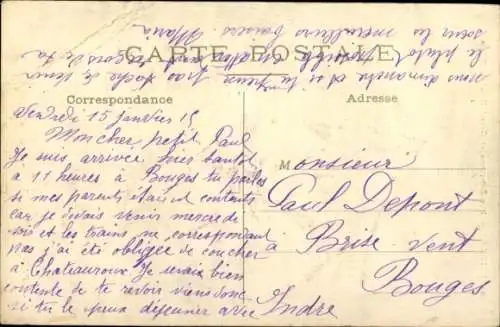 CARTE POSTALE
Correspondance
Adresse
Vendredi 15 janvier 15
Mon cher petit Paul
Je suis arrivée hier
a 11 heures à Bouges tu parles
si mes parents étaient contents
car je devais venir mercredi
soir et les trains ne correspondant
pas j'ai été obligée de coucher
à Chateauroux. Je serais bien
contente de te revoir viens donc
si tu le peux déjeuner avec
nous dimanche et si tu peux
le plutôt possible
sœur les meilleurs baisers Maria
Monsieur
Paul Depont
à Brise Vent
Bouges
Indre